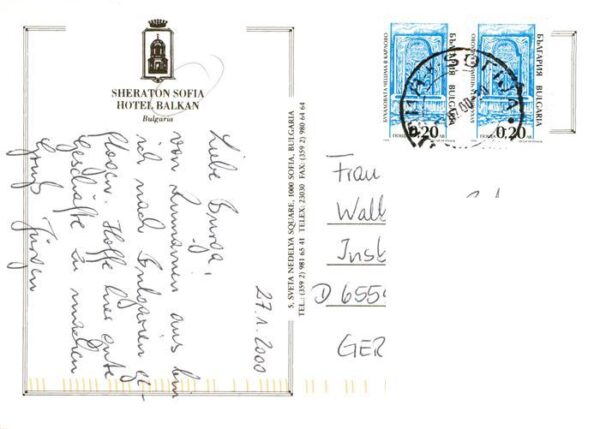 SHERATON SOFIA
HOTEL BALKAN
Bulgaria
27.1.2000
Liebe Burga,
von Rumänien aus bin
ich nach Bulgarien ge-
flogen. Hoffe hier gute
Geschäfte zu machen
Gruß Jürgen
5, SVETA NEDELYA SQUARE, 1000 SOFIA, BULGARIA
TEL.: (359 2) 981 65 41 TELEX: 23030 FAX: (359 2) 980 64 64
БУХАЛОВАТА ЧЕШМА В КАРЛОВО
БЪЛГАРИЯ BULGARIA
0,20
БЪЛГАРИЯ BULGARIA
0,20
SOFIJA
Frau
Wall
Inst
D 655
GER